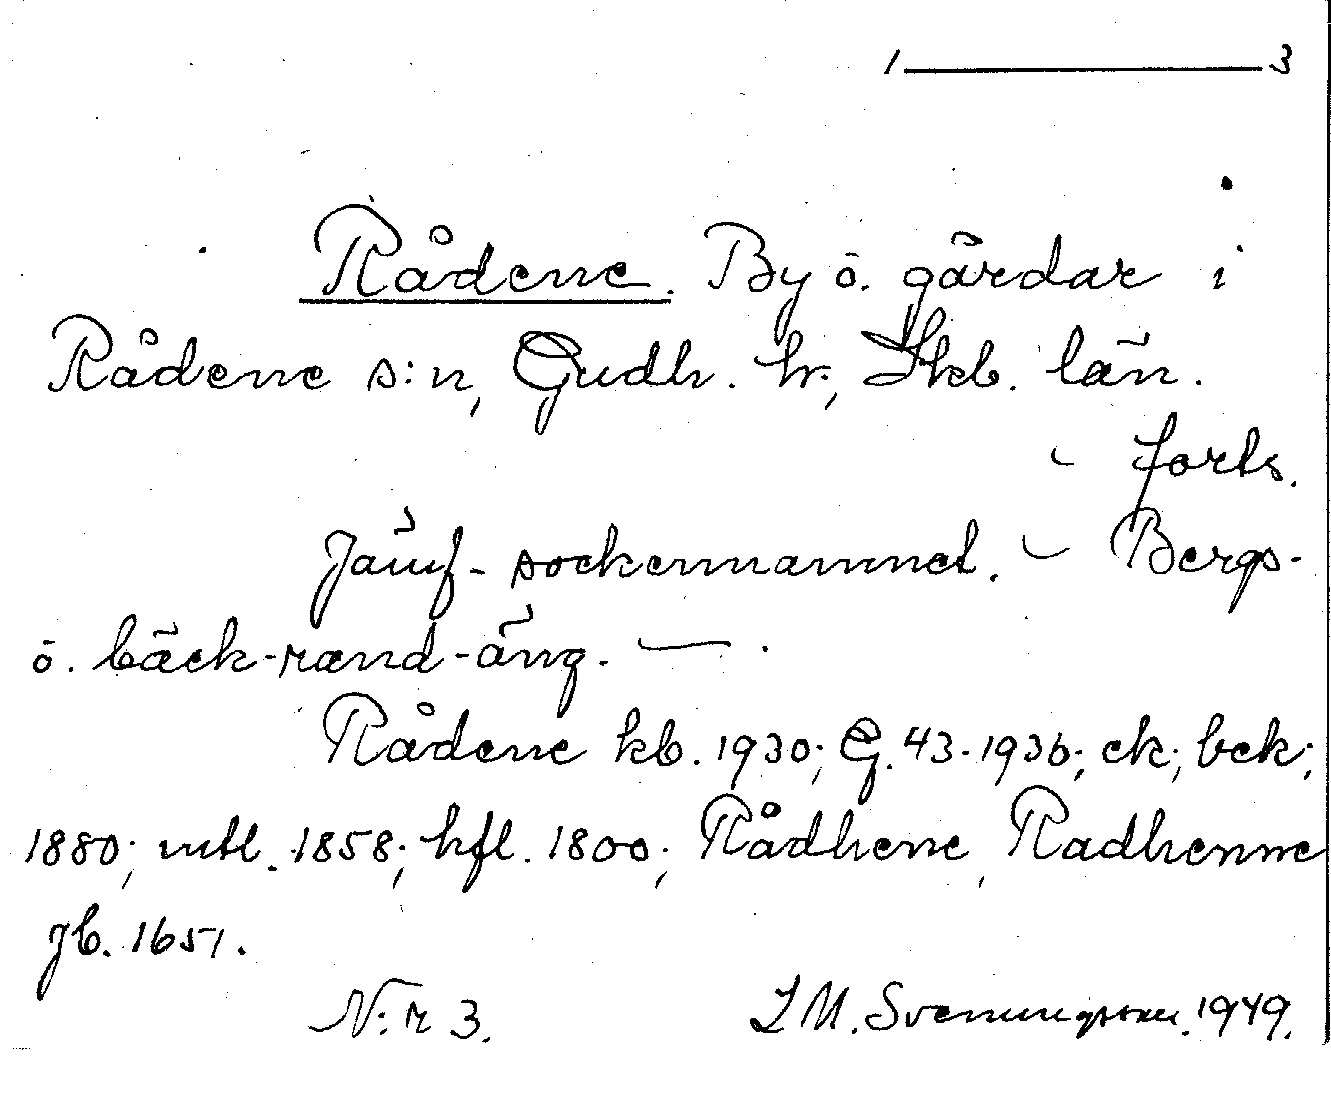 1 ——— 3
Rådene. By ö. gårdar i
Rådene s:n, Gudh. hr., Skb. län.
– forts.
Jämf. sockennamnet. – Bergs-
ö. bäck-rand-äng. — .
Rådene kb. 1930; G. 43-1936; ek; bek;
1880; mtl. 1858; hfl. 1800; Rådhene, Radhenne
jb. 1651.
N:r 3. I M. Svenungsson. 1949.